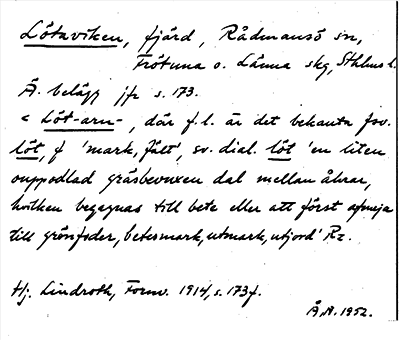 Lötaviken, fjärd, Rådmansö sn,
Frötuna o. Länna skg, Sthlms l.
Ä. belägg jfr s. 173.
< Löt-arn-, där f.l. är det bekanta fsv.
löt, f 'mark, fält', sv. dial. löt 'en liten
ouppodlad gräsbevuxen dal mellan åkrar,
hvilken begagnas till bete eller att först afmeja
till grönfoder, betesmark, utmark, utjord' Rz.
Hj. Lindroth, Fornv. 1914, s. 173f.
Å.N. 1952.